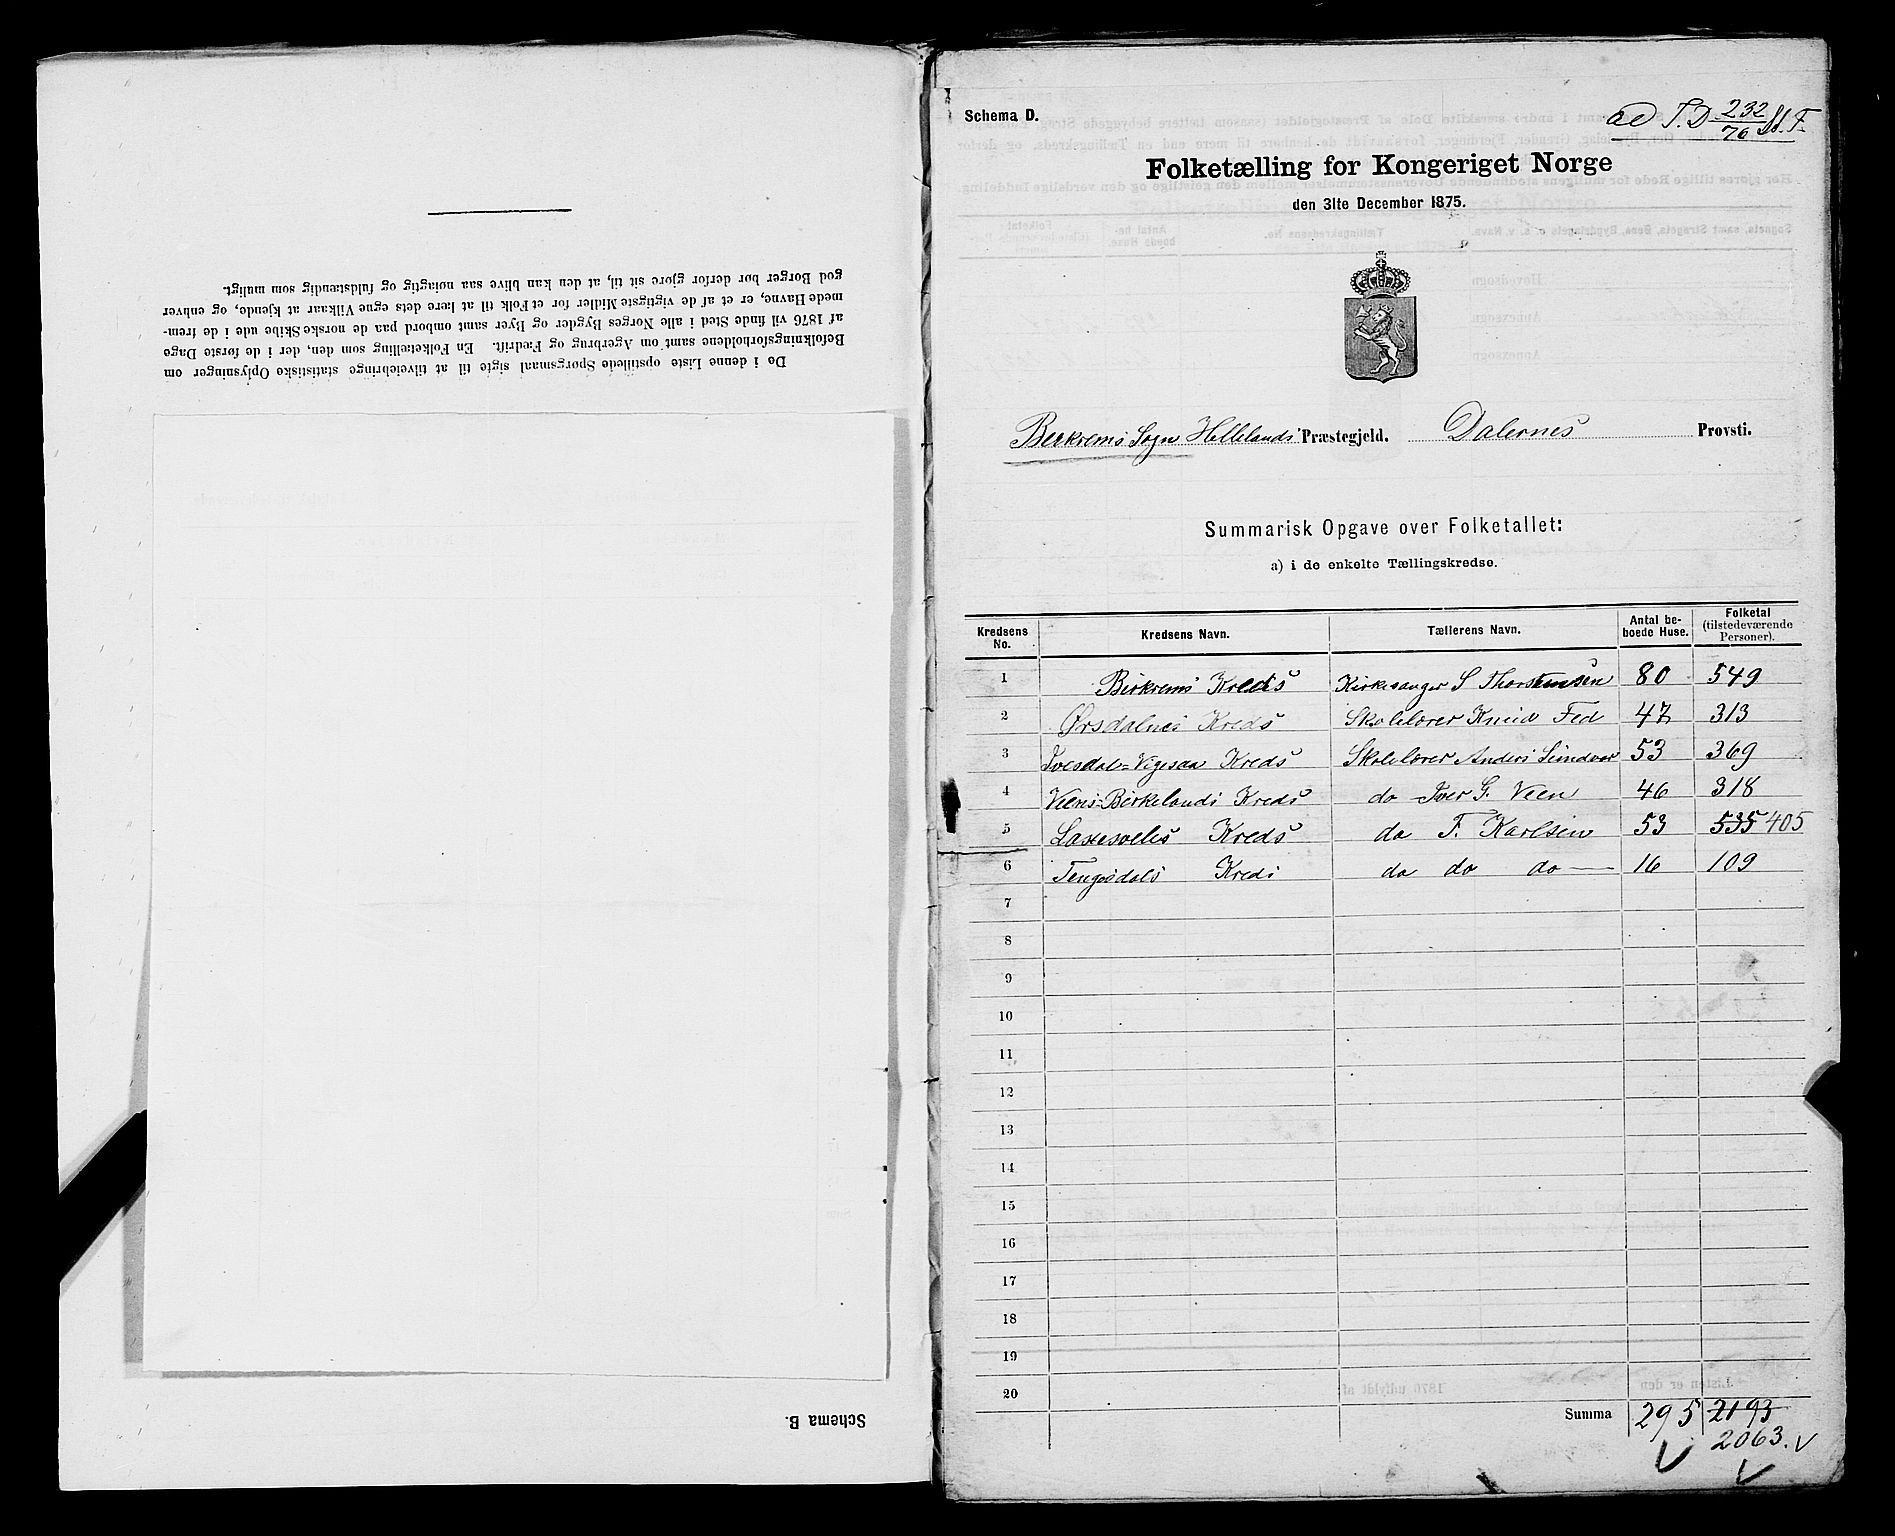 De i denne Liste opstillede Spørgsmaal sigte til at tilveiebringe statistiske Oplysninger om
Befolkningsforholdene samt om Agerbrug og Fædrift. En Folketælling som den, der i de første Dage
af 1876 vil finde Sted i alle Norges Bygder og Byer samt ombord paa de norske Skibe ude i de frem-
mede Havne, er et af de vigtigste Midler for et Folk til at lære dets egne Vilkaar at kjende, og enhver
god Borger bør derfor gjøre sit til, at den kan blive saa nøiagtig og fuldstændig som muligt.
Schema B.
Schema D.
ad T.D 232/76
Folketælling for Kongeriget Norge
den 31te December 1875.
Berkrems Sogn Hellelands Præstegjeld. Dalernes Provsti.
Summarisk Opgave over Folketallet:
a) i de enkelte Tællingskredse.
Kredsens No. Kredsens Navn. Tællerens Navn. Antal be-boede Huse. Folketal (tilstedeværende Personer).
1 Birkrems Kreds Kirkesanger S Thorstensen 80 549
2 Ørsdalnes Kreds Skolelærer Knud Fed 47 313
3 Ivesdal-Vigesaa Kreds Skolelærer Anders 53 369
4 Veens-Birkelands Kreds do Iver G. Veen 46 318
5 Laxesveles Kreds do T. Karlsen 53 535 405
6 Tengesdals Kreds do do do 16 109
7
8
9
10
11
12
13
14
15
16
17
18
19
20
Summa 295 2193
2063.